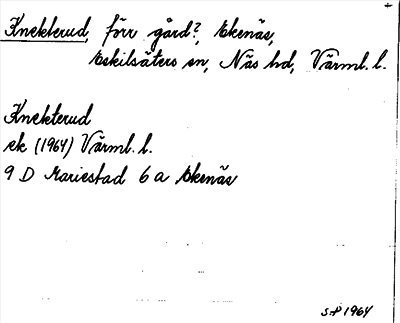 +
Knekterud, förr gård?, Ekenäs,
Eskilsäters sn, Näs hd, Värml. l.
Knekterud
ek (1964) Värml. l.
9 D Mariestad 6 a Ekenäs
1964